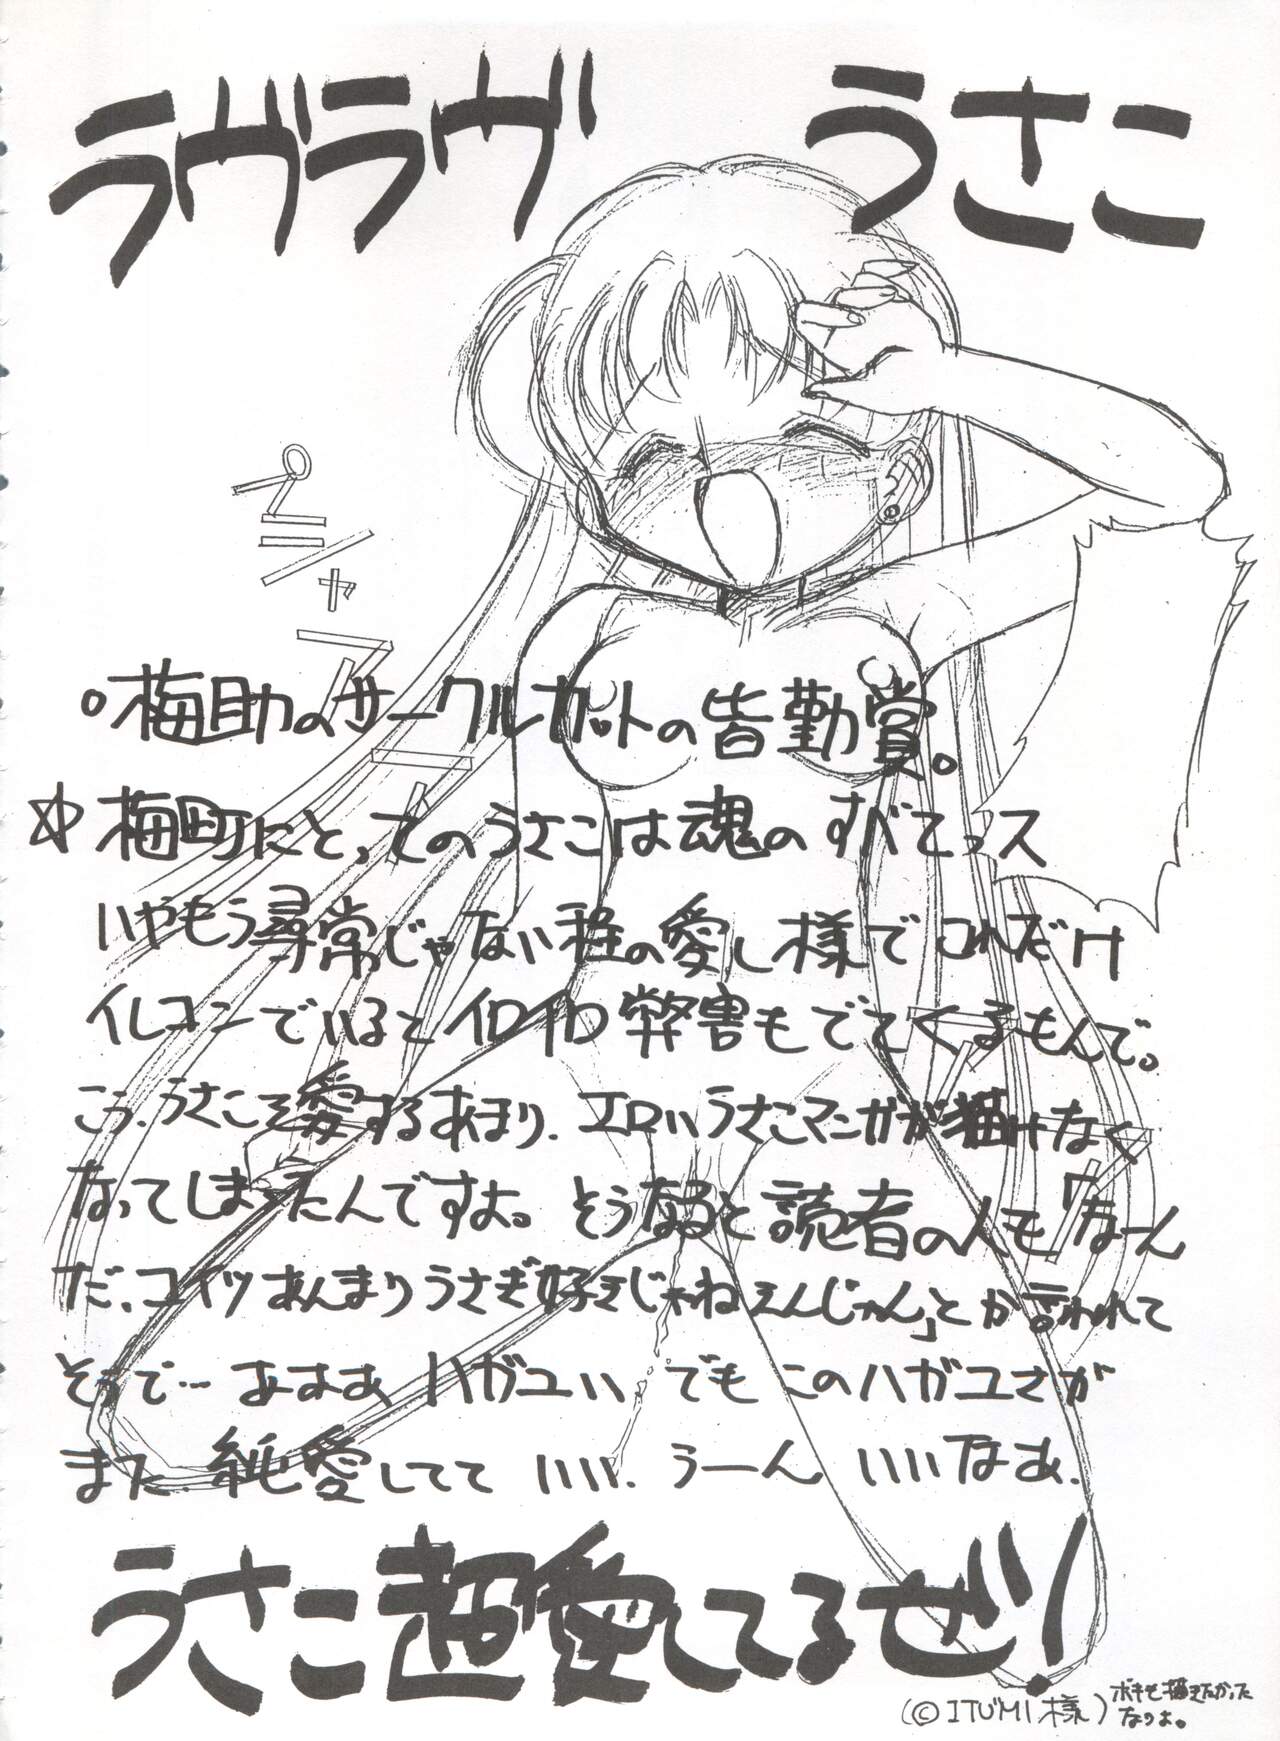 ラヴラヴ うさこ
プシャアアァ
○梅助のサークルカットの皆勤賞。
☆梅町にとってのうさこは魂のすべてっス
いやもう尋常じゃない程の愛し様でこれだけ
イレコンでいるとイロイロ弊害もでてくるもんで。
こう、うさこを愛するあまり、エロいうさこマンガが描けなく
なってしまったんですよ。そうなると読者の人も「なーん
だ、コイツあんまりうさぎ好きじゃねえんじゃん」とか言われて
そって… ああああ、ハガユいい でもこのハガユさが
また 純愛してて いいい、うーん いいなあ、
うさこ超愛してるぜ!
(©ITUMI様)
ボキも描きたかった
なりよ。